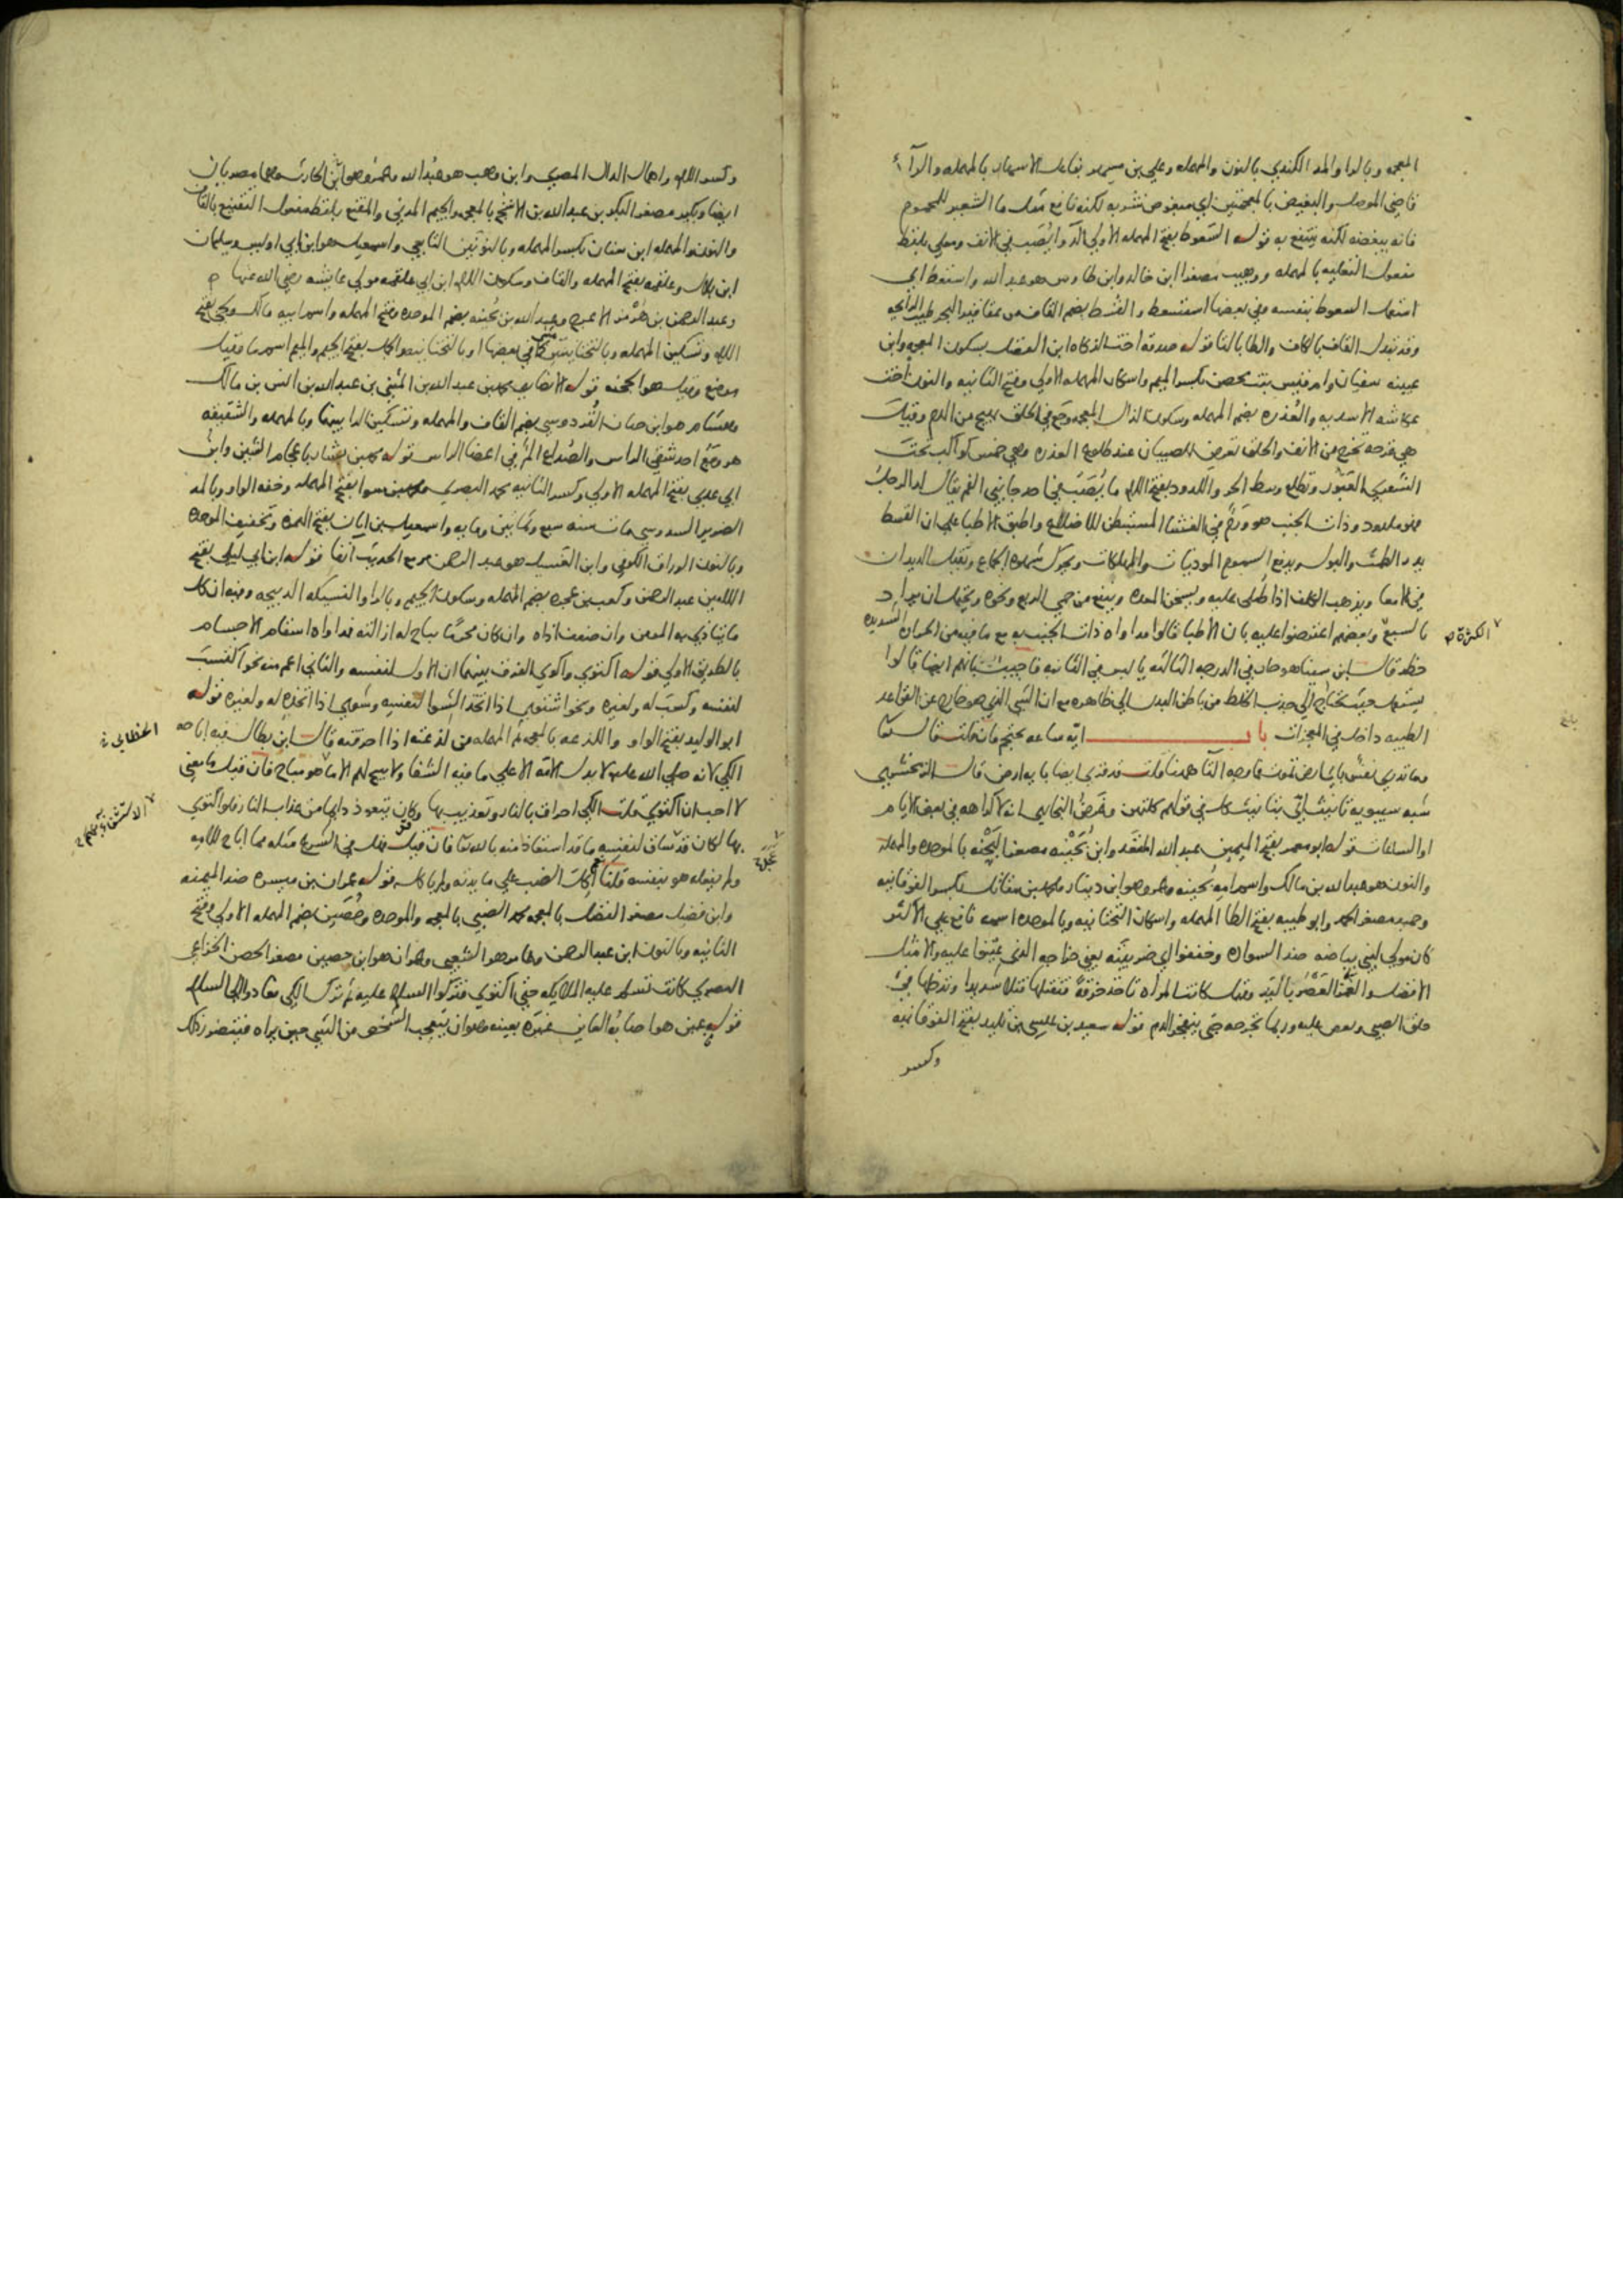 المعجمه وبالرا والمد الكندي بالنون والمهمله وعلي بن مسهر بفاعل الاسهار بالمهمله والرآء
قاضي الموصل والبغيض بالمعجمتين اي مبغوض شربه لكنه نافع مثل ما الشعير للمحموم
فانه يبغضه لكنه ينتفع به قوله السعوط بفتح المهمله الاولي الدوا يُصَب في الانف ومعلي بلفظ
مفعول التعليه بالمهمله ووهيب مصغرا ابن خالد وابن طاوس هو عبد الله واستعط اي
استعمل السعوط بنفسه وفي بعضها استسعط والقسط بضم القاف من عقاقير البحر طيب الرائحه
وقد تبدل القاف بالكاف والطا بالتا قوله صدقة اخت الزكاه ابن الفضل بسكون المعجمه وابن
عيينه سفيان وام قيس بنت محصن بكسر الميم واسكان المهمله الاولي وفتح الثانيه والنون اخت
عكاشه الاسديه والعُذره بضم المهمله وسكون الذال المعجمه وجع في الحلق يهيج من الدم وقيل
هي قرحه تخرج من الانف والحلق تعرض للصبيان عند طلوع العذره وهي خمس كواكب تحت
الشعري العَبُور وتطلع وسط الحر واللدود بفتح اللام ما يُصَب في احد جانبي الفم يقال لد الرجل
فهو ملدود وذات الجنب هو وَرَم في الغشا المستبطن للاضلاع واطبق الاطبا علي ان القسط
يدر الطمث والبول ويدفع السموم المؤذيات والمهلكات ويحرك شهوة الجماع ويقتل الديدان
في الامعا ويذهب الكلف اذا طُلي عليه ويسخن المعده وينفع من حمي الربع ونحوه ويحتمل ان يراد
بالسبع الكثرة وبعضهم اعترضوا عليه بان الاطبا قالوا مداواه ذات الجنب به مع ما فيه من الحراره الشديده
خطر قال ابن سينا هو حار في الدرجه الثالثه يابس في الثانيه فاجيب بانهم ايضا قالوا
يستعمل حيث يحتاج الي جذب الخلط من باطن البدن الي ظاهره مع ان الشي الذي هو خارج عن القواعد
الطبيه داخل في المعجزات باب ايه ساعه يحتجم فان قلت قال تعالي
وما تدري نفس باي ارض تموت فما وجه التا ههنا قلت قد قري ايضا بايه ارض قال الزمخشري
شبه سيبويه تانيث اي بتانيث كل في قولهم كلتهن وغرض البخاري انه لا كراهه في بعض الايام
او الساعات قوله ابو معمر بفتح الميمين عبد الله المقعد وابن بُحَيْنه مصغر البحنه بالموحده والمهمله
والنون هو عبد الله بن مالك واسم امه بُحينه وعمرو هو ابن دينار ومحمد بن مقاتل بكسر الفوقانيه
وحميد مصغر الحمد وابو طيبه بفتح الطا المهمله واسكان التحتانيه وبالموحده اسمه نافع علي الاكثر
كان مولي لبني بياضه ضد السواده وخففوا اي ضريبته يعني خراجه الذي عينوا عليه والامثل
الافضل والغمز العَصْر باليد وقيل كانت المراه تاخذ خرقة فتفتلها فتلا شديدا وتدخلها في
حلق الصبي وتعصر عليه وربما تجرحه حتي ينفجر الدم قوله سعيد بن عيسي بن تليد بفتح الفوقانيه
وكسر
وكسر اللام واهمال الدال المصري وابن وهب هو عبد الله وعمرو هو ابن الحارث وهما مصريان
ايضا وبكير مصغر البكر بن عبد الله بن الاشج بالمعجمه والجيم المدني والمقنع بلفظ مفعول التقنيع بالقاف
والنون والمهمله ابن سنان بكسر المهمله وبالنونين التابعي واسمعيل هو ابن ابي اويس وسليمان
ابن بلال وعلقمه بفتح المهمله والقاف وسكون اللام ابن ابي علقمه مولي عايشه رضي الله عنها
وعبد الرحمن بن هُرْمز الاعرج وعبد الله بن بُحينه بضم الموحده وفتح المهمله واسم ابيه مالك ولحي بفتح
اللام وتسكين المهمله وبالتحتانيتين كما في بعضها او بالتحتانيه والجمل بفتح الجيم والميم اسم ما وقيل
موضع وقيل هو الجحفه قوله الانصاري محمد بن عبد الله بن المثني بن عبد الله بن انس بن مالك
وهشام هو ابن حسان القُردوسي بضم القاف والمهمله وتسكين الرا بينهما وبالمهمله والشقيقه
هو وجع احد شقي الراس والصُداع الم في اعضا الراس قوله محمد بن بشار باعجام الشين وابن
ابي عدي بفتح المهمله الاولي وكسر الثانيه محمد البصري ومحمد بن سوا بفتح المهمله وخفه الواو وبالمد
الضرير السدوسي مات سنه سبع وثمانين ومايه واسمعيل بن ابان بفتح الهمزه وتخفيف الموحده
وبالنون الوراق الكوفي وابن الغسيل هو عبد الرحمن مر مع الحديث آنفا قوله ابن ابي ليلي بفتح
اللامين عبد الرحمن وكعب بن عجره بضم المهمله وسكون الجيم وبالرا والنسيكه الذبيحه وفيه ان كل
ما يتاذي به المومن وان ضعف اذاه وان كان محرما يباح له ازالته فمداواه اسقام الاجسام
بالطريق الاولي قوله اكتوي واكوي الفرق بينهما ان الاول لنفسه والثاني اعم منه نحو اكتسب
لنفسه وكسب له ولغيره ونحو اشتوي اذا اتخذ الشوا لنفسه وشوي اذا اتخذه له ولغيره قوله
ابو الوليد بفتح الواو واللذعه بالمعجمه ثم المهمله من لذعته اذا احرقته قال ابن بطال فيه اباحه
الكي لانه صلي الله عليه لا يدل الامه الا علي ما فيه الشفا ولا يبيح لهم الا ما هو مباح فان قيل ما معني
لا احب ان اكتوي قلت الكي احراق بالنار وتعذيب بها وكان يتعوذ دايما من عذاب النار فلو اكتوي
بها لكان قد ساق لنفسه ما قد استعاذ منه بالله تعا فان قيل فهل في الشرع مثله مما اباح للامه
ولم يفعله هو بنفسه قلنا اكل الضب علي مايدته ولم ياكله قوله عمران بن ميسره ضد الميمنه
وابن فضيل مصغر الفضل بالمعجمه محمد الضبي بالمعجمه والموحده وحُصَين بضم المهمله الاولي وفتح
الثانيه وبالنون ابن عبد الرحمن وعامر هو الشعبي وعمران هو ابن حصين مصغر الحصن الخزاعي
البصري كانت تسلم عليه الملايكه حتي اكتوي فتركوا السلام عليه ثم ترك الكي فعادوا الي السلام
قوله عين هو اصابة العاين غيره بعينه وهو ان يتعجب الشخص من الشي حين يراه فيتضرر ذلك
الخطابي